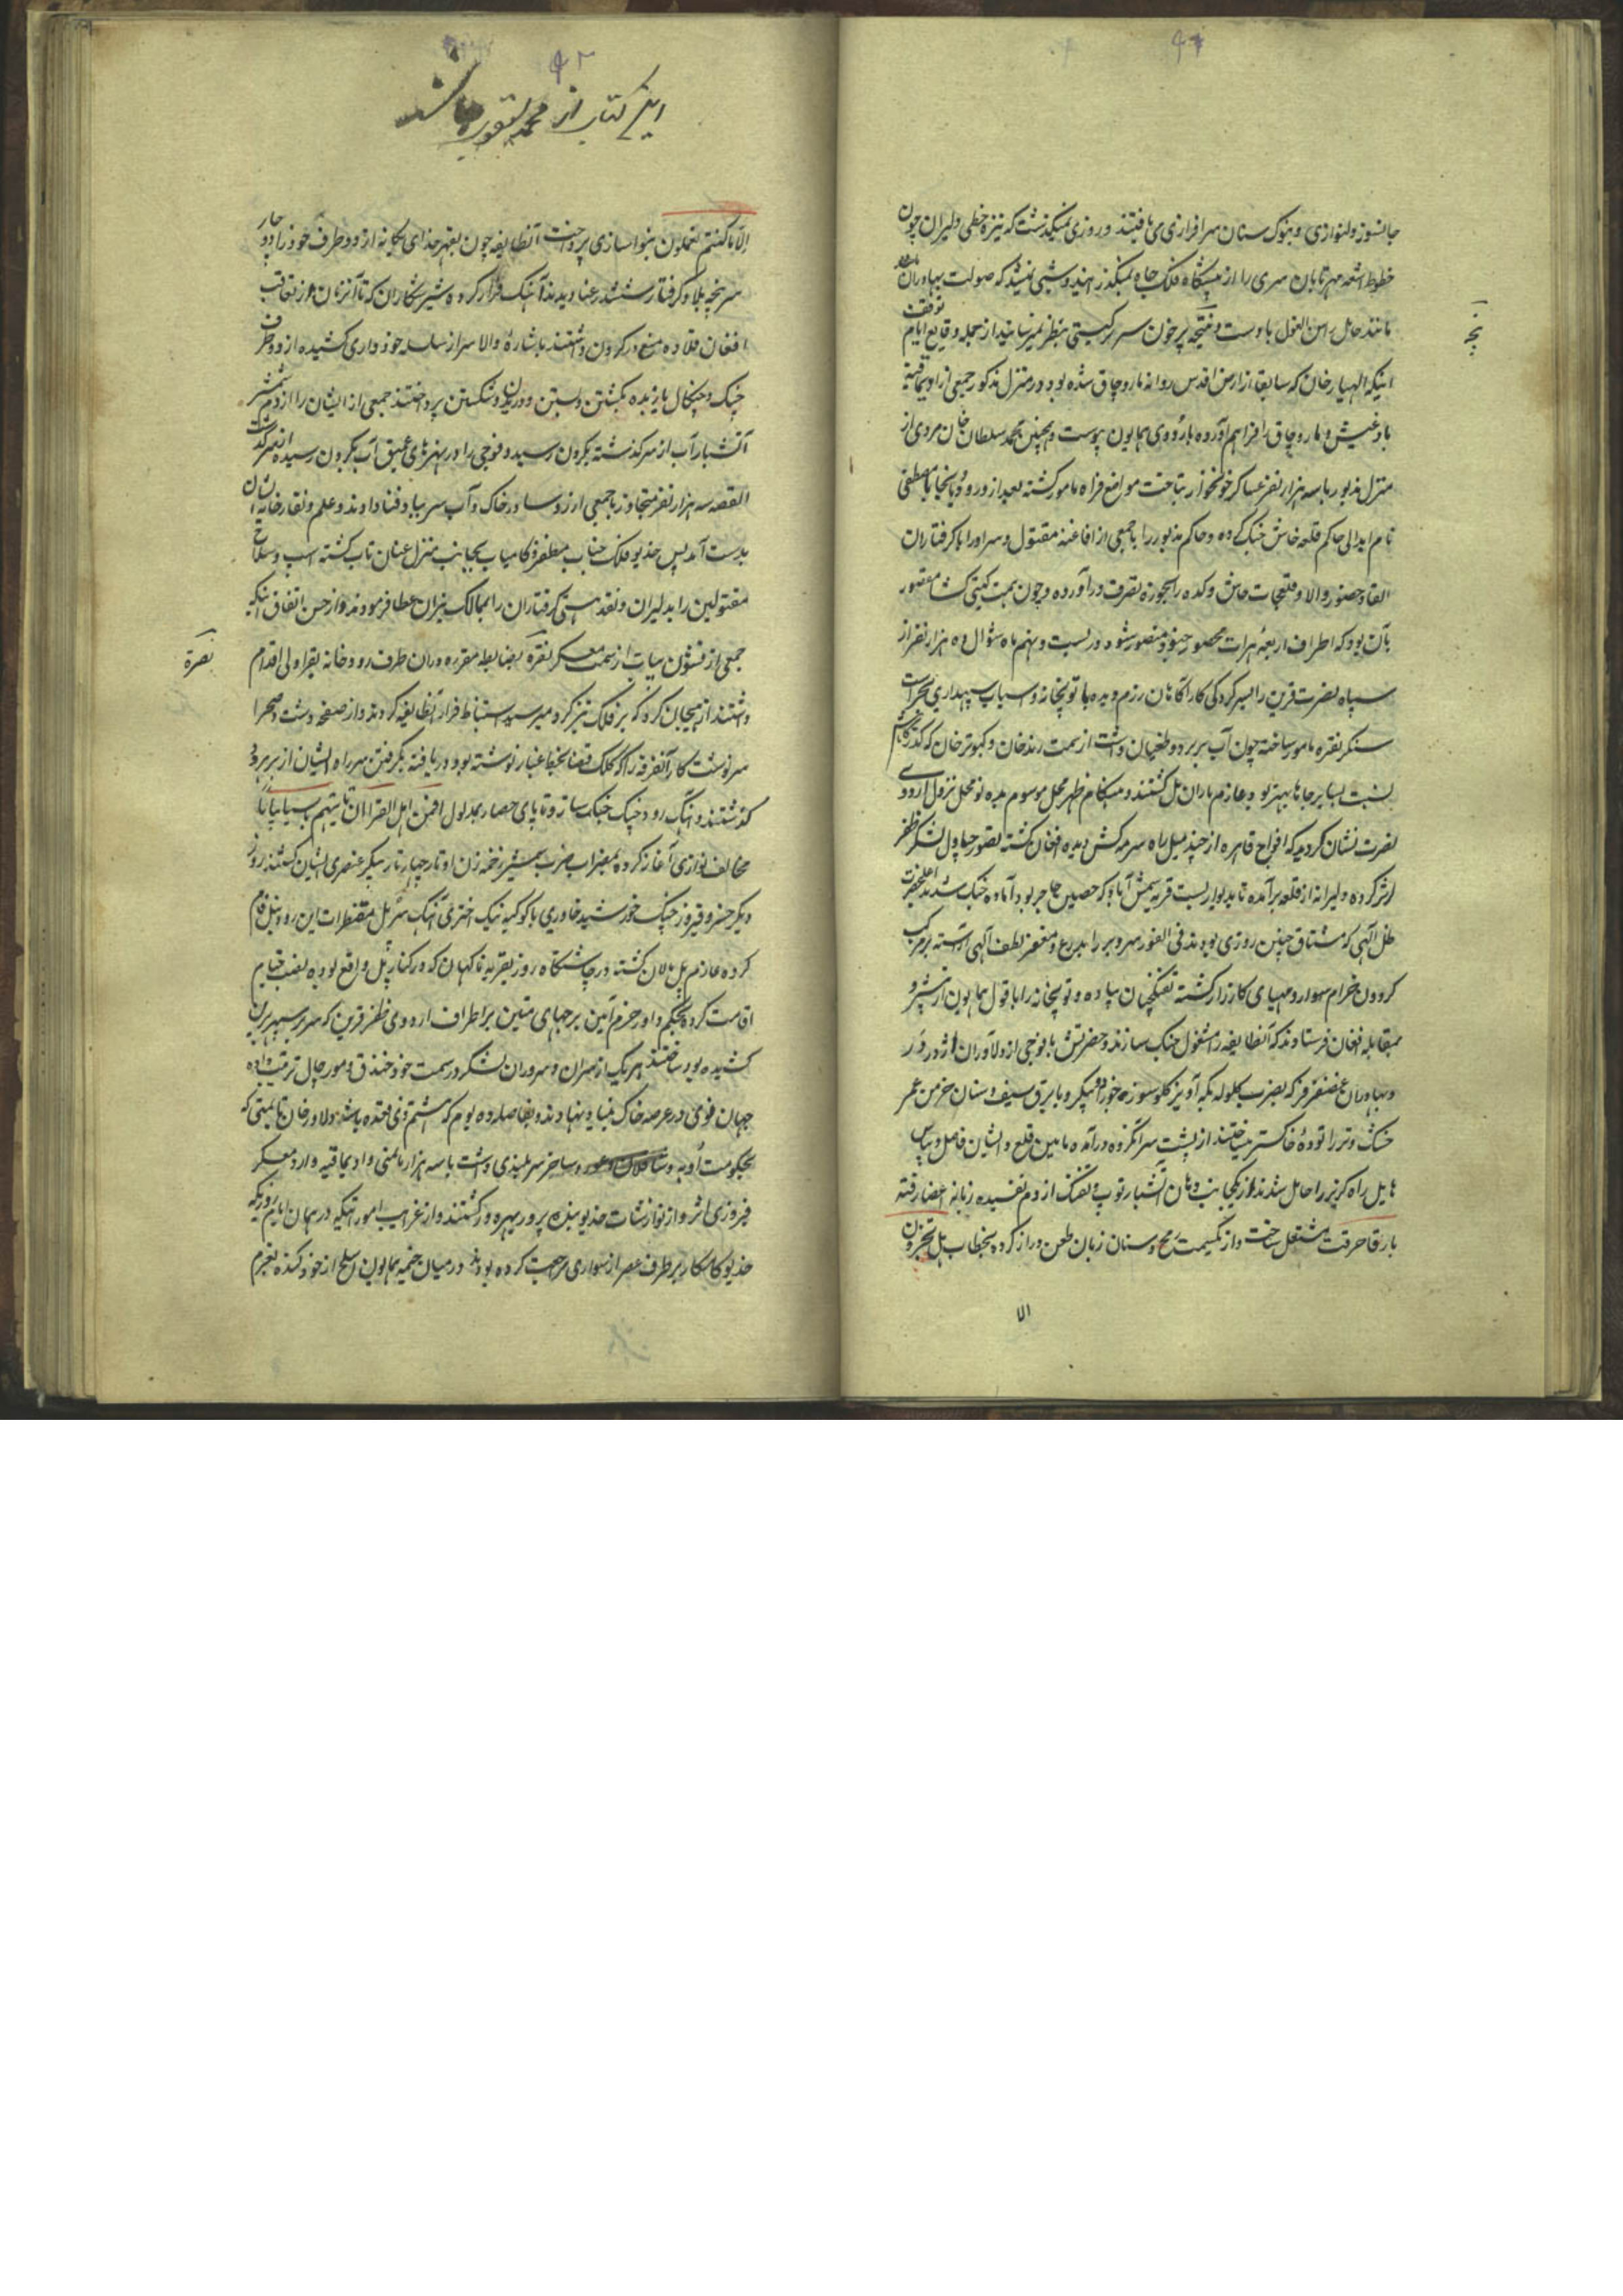 جانسوز و لنوازی و بنوک سنان سرافرازی می یافتند و روزی نمیگذشت که نیزه خطی دلیران چون
خطوط اشعه مهر تابان سری را از پیشگاه فلک جاه نمیگذرانید و شبی نمیشد که صولت بهادران
مانند حامل راس الغول با دست و پنجه پر خون سر سرکشی بنظر نمیرسانید از جمله وقایع ایام توقف
اینکه الهیار خان که سابقا از ارض اقدس روانه ماروچاق شده بود در منزل مذکور جمعی از اویماقیه
بادغیش و ماروچاق را فراهم آورده باردوی همایون پیوست و همچنین محمد سلطان خان مروی از
منزل مذبور با سه هزار نفر عساکر خونخوار بتاخت مواضع فراه مامور گشته بعد از ورود بانجا با مصطفی
نام ابدالی حاکم قلعه خاش جنگ کرده و حاکم مذبور را با جمعی از افاغنه مقتول و سر او را با گرفتاران
انفاد حضور والا و قلعجات خاش و کده را بحوزه تصرف در آورده و چون همت گیتی گشا مقصور
بآن بود که اطراف اربعه هرات محصور جنود منصور شود در بیست و نهم ماه شوال ده هزار نفر از
سپاه نصرت قرین را بسرکردگی کارآگاهان رزم دیده با توپخانه و اسباب سپهداری بحراست
سنگر نقره مامور ساخته چون آب بربر رود طغیان داشت از سمت رندخان و کبوتر خان که گذرگاهش
نسبت بسایر جاها بهتر بود عازم باران پل گشتند و هنگام ظهر محل موسوم بده نو محل نزول اردوی
نصرت نشان گردید که افواج قاهره از چند میل راه سرمه کش دیده افغان گشته بتصور چپاول لشکر ظفر
اثر کرده دلیرانه از قلعه برآمده تا بدیوار بست قریه شمس آباد که حصین حاجز بود آماده جنگ شدند اعلیحضرت
ظل الهی که مشتاق چنین روزی بودند فی الفور سر و بر را بدرع و مغفر لطف الهی آراسته بر مرکب
گردون خرام سوار و مهیای کارزار گشته تفنگچیان پیاده و توپخانه را با قول همایون از پیش رو
بمقابله افغان فرستادند که آنطایفه را مشغول جنگ سازند و حضرتش با فوجی از دلاوران اژدر در
و بهادران غضنفر فر که بضرب گلوله تکه آویز کلو سوز و با برق سیف و سنان خرمن عمر
خشک و تر را توده خاکستر میساختند از پشت سر آنگروه درآمده مابین قلعه و ایشان فاصل و بپاس
هایل راه گریز را حایل شدند و از یکجانب دهان آتشبار توپ و تفنگ از دم تفسیده زبانه اعضا رفته
بارقا حرقت مشتعل ساخت و از یکسمت رمح و سنان زبان طعن دراز کرده بخطاب هل تجزون
الا
پنجه
۹۲
این کتاب از محمد یعقوب میباشد
الا ما کنتم تعملون بنواسازی پرداخت آنطایفه چون بقهر خدای یگانه از دو طرف خود را دوچار
سرپنجه بلا و گرفتار ششدر عنا دیدند آهنگ فرار کرده شیر شکاران که تا آنزمان از تعاقب
افغان قلاده منع در گردن داشتند باشاره والا سر از سلسله خودداری کشیده از دو طرف
چنگ و چنگال یازیده بکشتن و بستن و دریدن و شکستن پرداختند جمعی از ایشان را از دم شمشیر
آتشبار آب از سر گذشته بگردن رسید و فوجی را در نهرهای عمیق آب بگردن رسیده از سر گذشت
القصه سه هزار نفر متجاوز با جمعی از روسا در خاک و آب سر بباد فنا دادند و علم و نقارخانه ایشان
بدست آمد پس خدیو فلک جناب مظفر و کامیاب بجانب منزل عنان تاب گشته اسب و سلاح
مقتولین را بدلیران و نقد هستی گرفتاران را بممالک نیران عطا فرمودند و از حسن اتفاق اینکه
جمعی از قشون بیات از سمت معسکر نقره بضابطه مقرره در آن طرف رودخانه بقراولی اقدام
داشتند از هیجان گرد که بر فلک تیز گرد میرسید استنباط فرار آنطایفه کردند و از صفحه دشت و صحرا
سرنوشت کار آنفرقه را که کلک قضا بخط غبار نوشته بود دریافته بگرفتن سر راه ایشان از بربر رود
گذشتند و آهنگ رود چنگ جنگ ساز و تا پای حصار بمدلول افمن اهل القرا ان یاتیهم باسنا بیاتا
مخالف نوازی آغاز کرده بمضراب ضرب شمشیر زخمه زن اوتار چهار تار پیکر عنصری ایشان گشتند روز
دیگر خسرو فیروز جنگ خورشید خاوری با کوکبه نیک اختری آهنگ سر پل مقنطرات این رود نیل فام
کرده عازم پل مالان گشته در چاشتگاه روز بقریه ناگهان که در کنار پل واقع بود به نصب خیام
اقامت کرده بحکم داور حزم آیین برجهای متین بر اطراف اردوی ظفر قرین که سر بر سپهر برین
کشیده بود ساختند هر یک از سران و سروران لشکر در سمت خود خندق و مورچال ترتیب داده
جهان قوی در عرصه خاک بنیاد نهادند و بفاصله ده یوم که هشتم ذی قعده باشد دلاور خان تایمنی که
بحکومت اوبه و شاقلان و غور و ساخر سربلندی داشت با سه هزار تایمنی و اویماقیه وارد معسکر
فیروزی اثر و از نوازشات خدیو بنده پرور بهره ور گشتند و از غرایب امور اینکه در همان ایام روزیکه
خدیو کامکار بر طرف عصر از سواری مراجعت کرده بود در میان خیمه همایون سلاح از خود کنده بعزم
نصرة